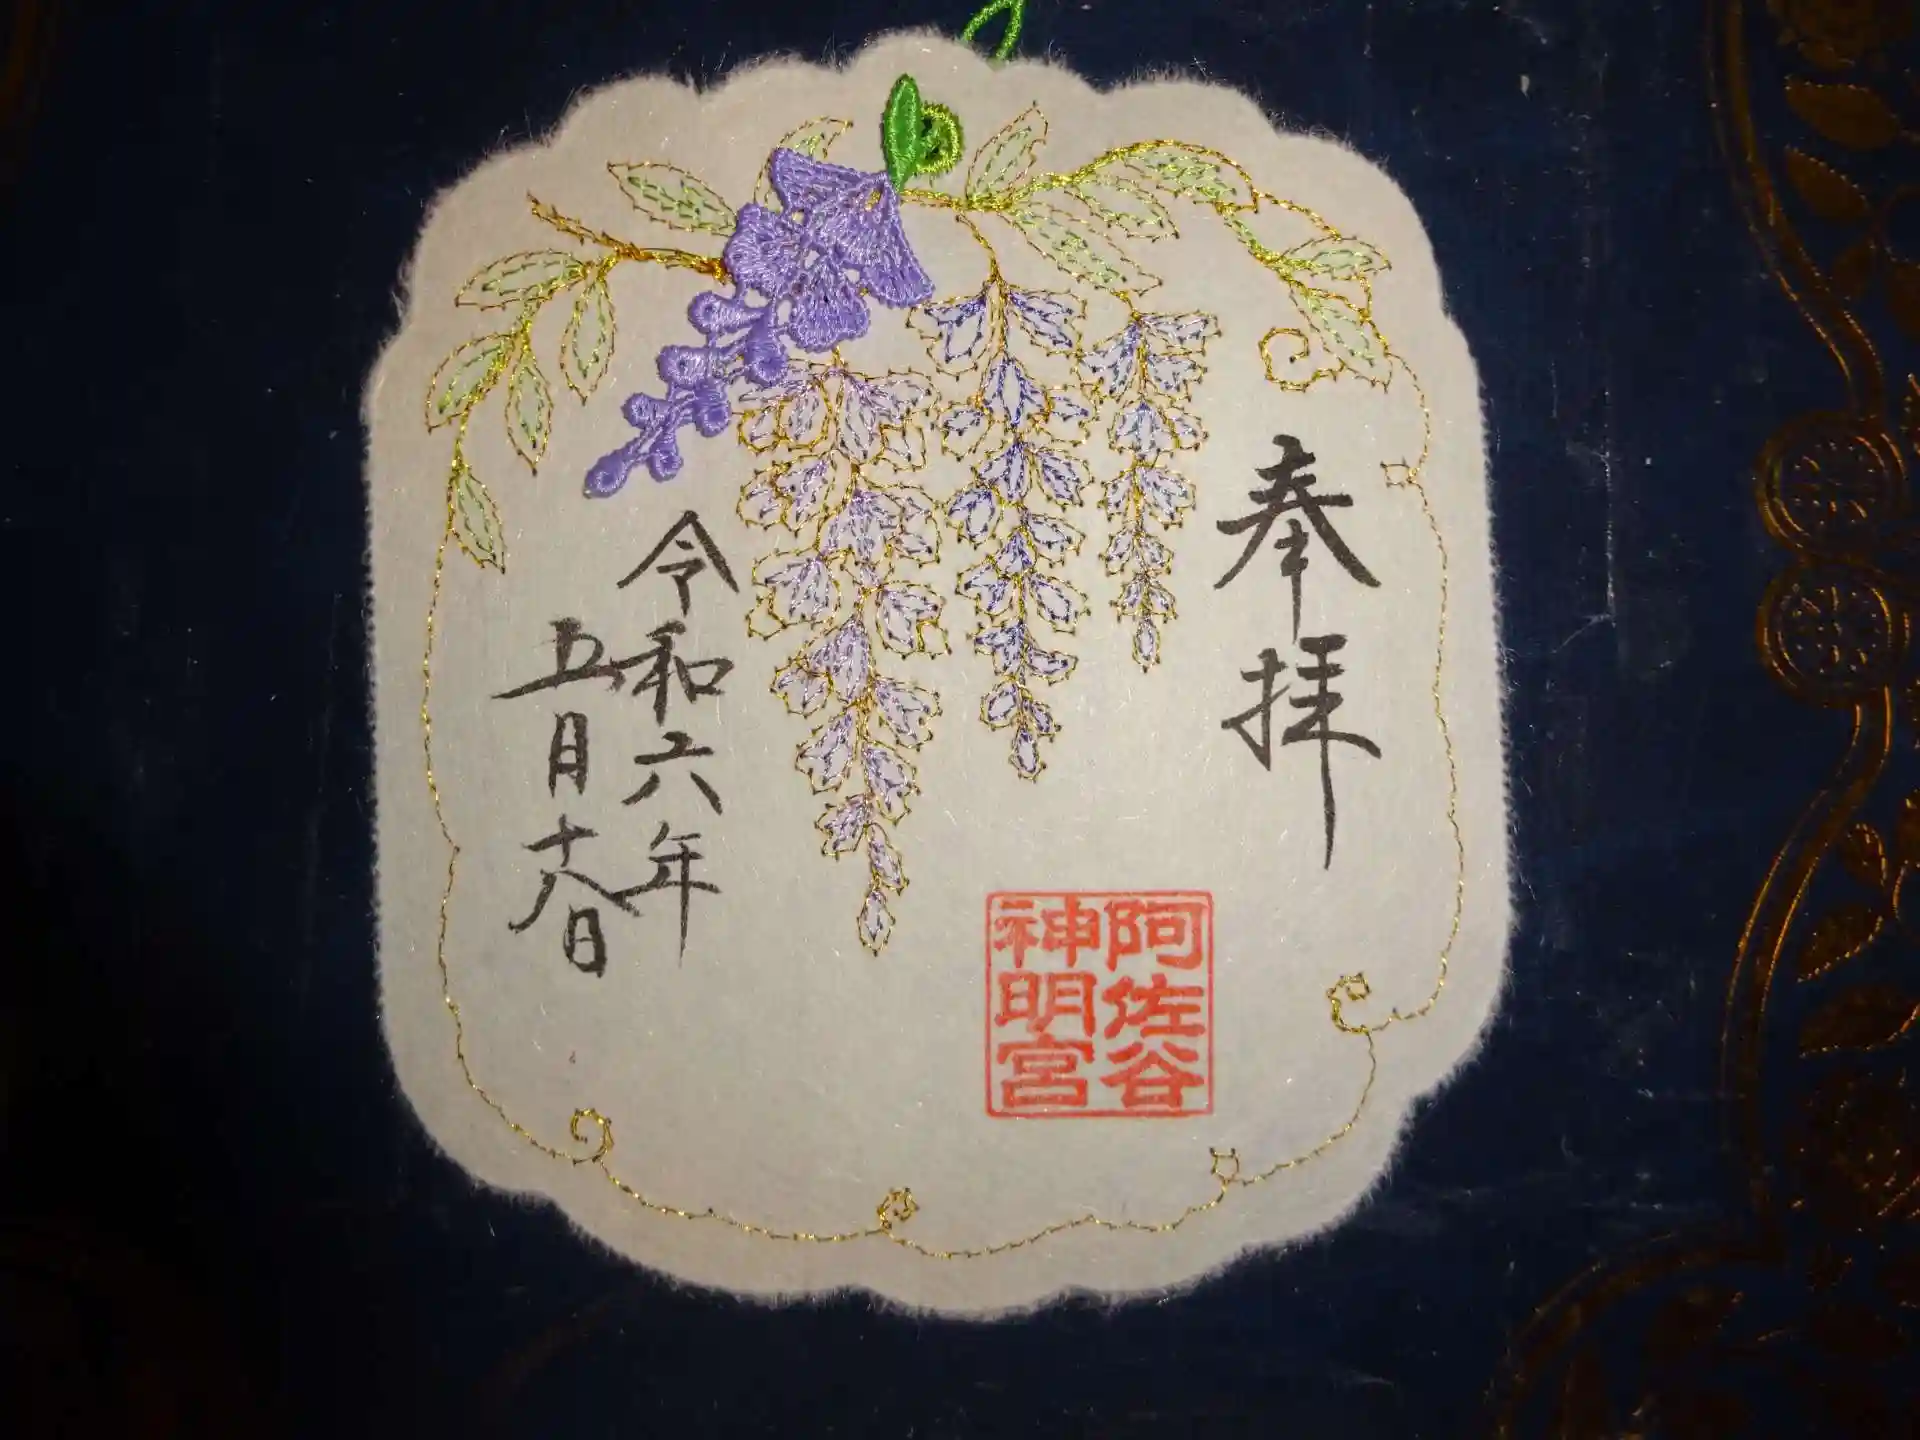 奉拝
阿佐谷
神明宮
令和六年
五月十八日